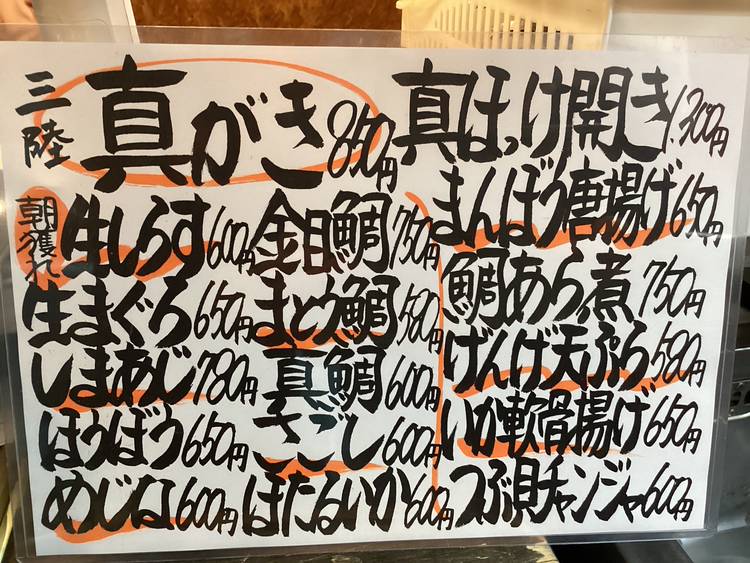 三陸 真がき 850円
朝獲れ 生しらす 600円
生まぐろ 650円
しまあじ 780円
ほうぼう 650円
めじな 600円
金目鯛 750円
まとう鯛 580円
真鯛 600円
さごし 600円
ほたるいか 600円
真ほっけ開き 1,300円
まんぼう唐揚げ 650円
鯛あら煮 750円
げんげ天ぷら 580円
いか軟骨揚げ 650円
つぶ貝チャンジャ 600円